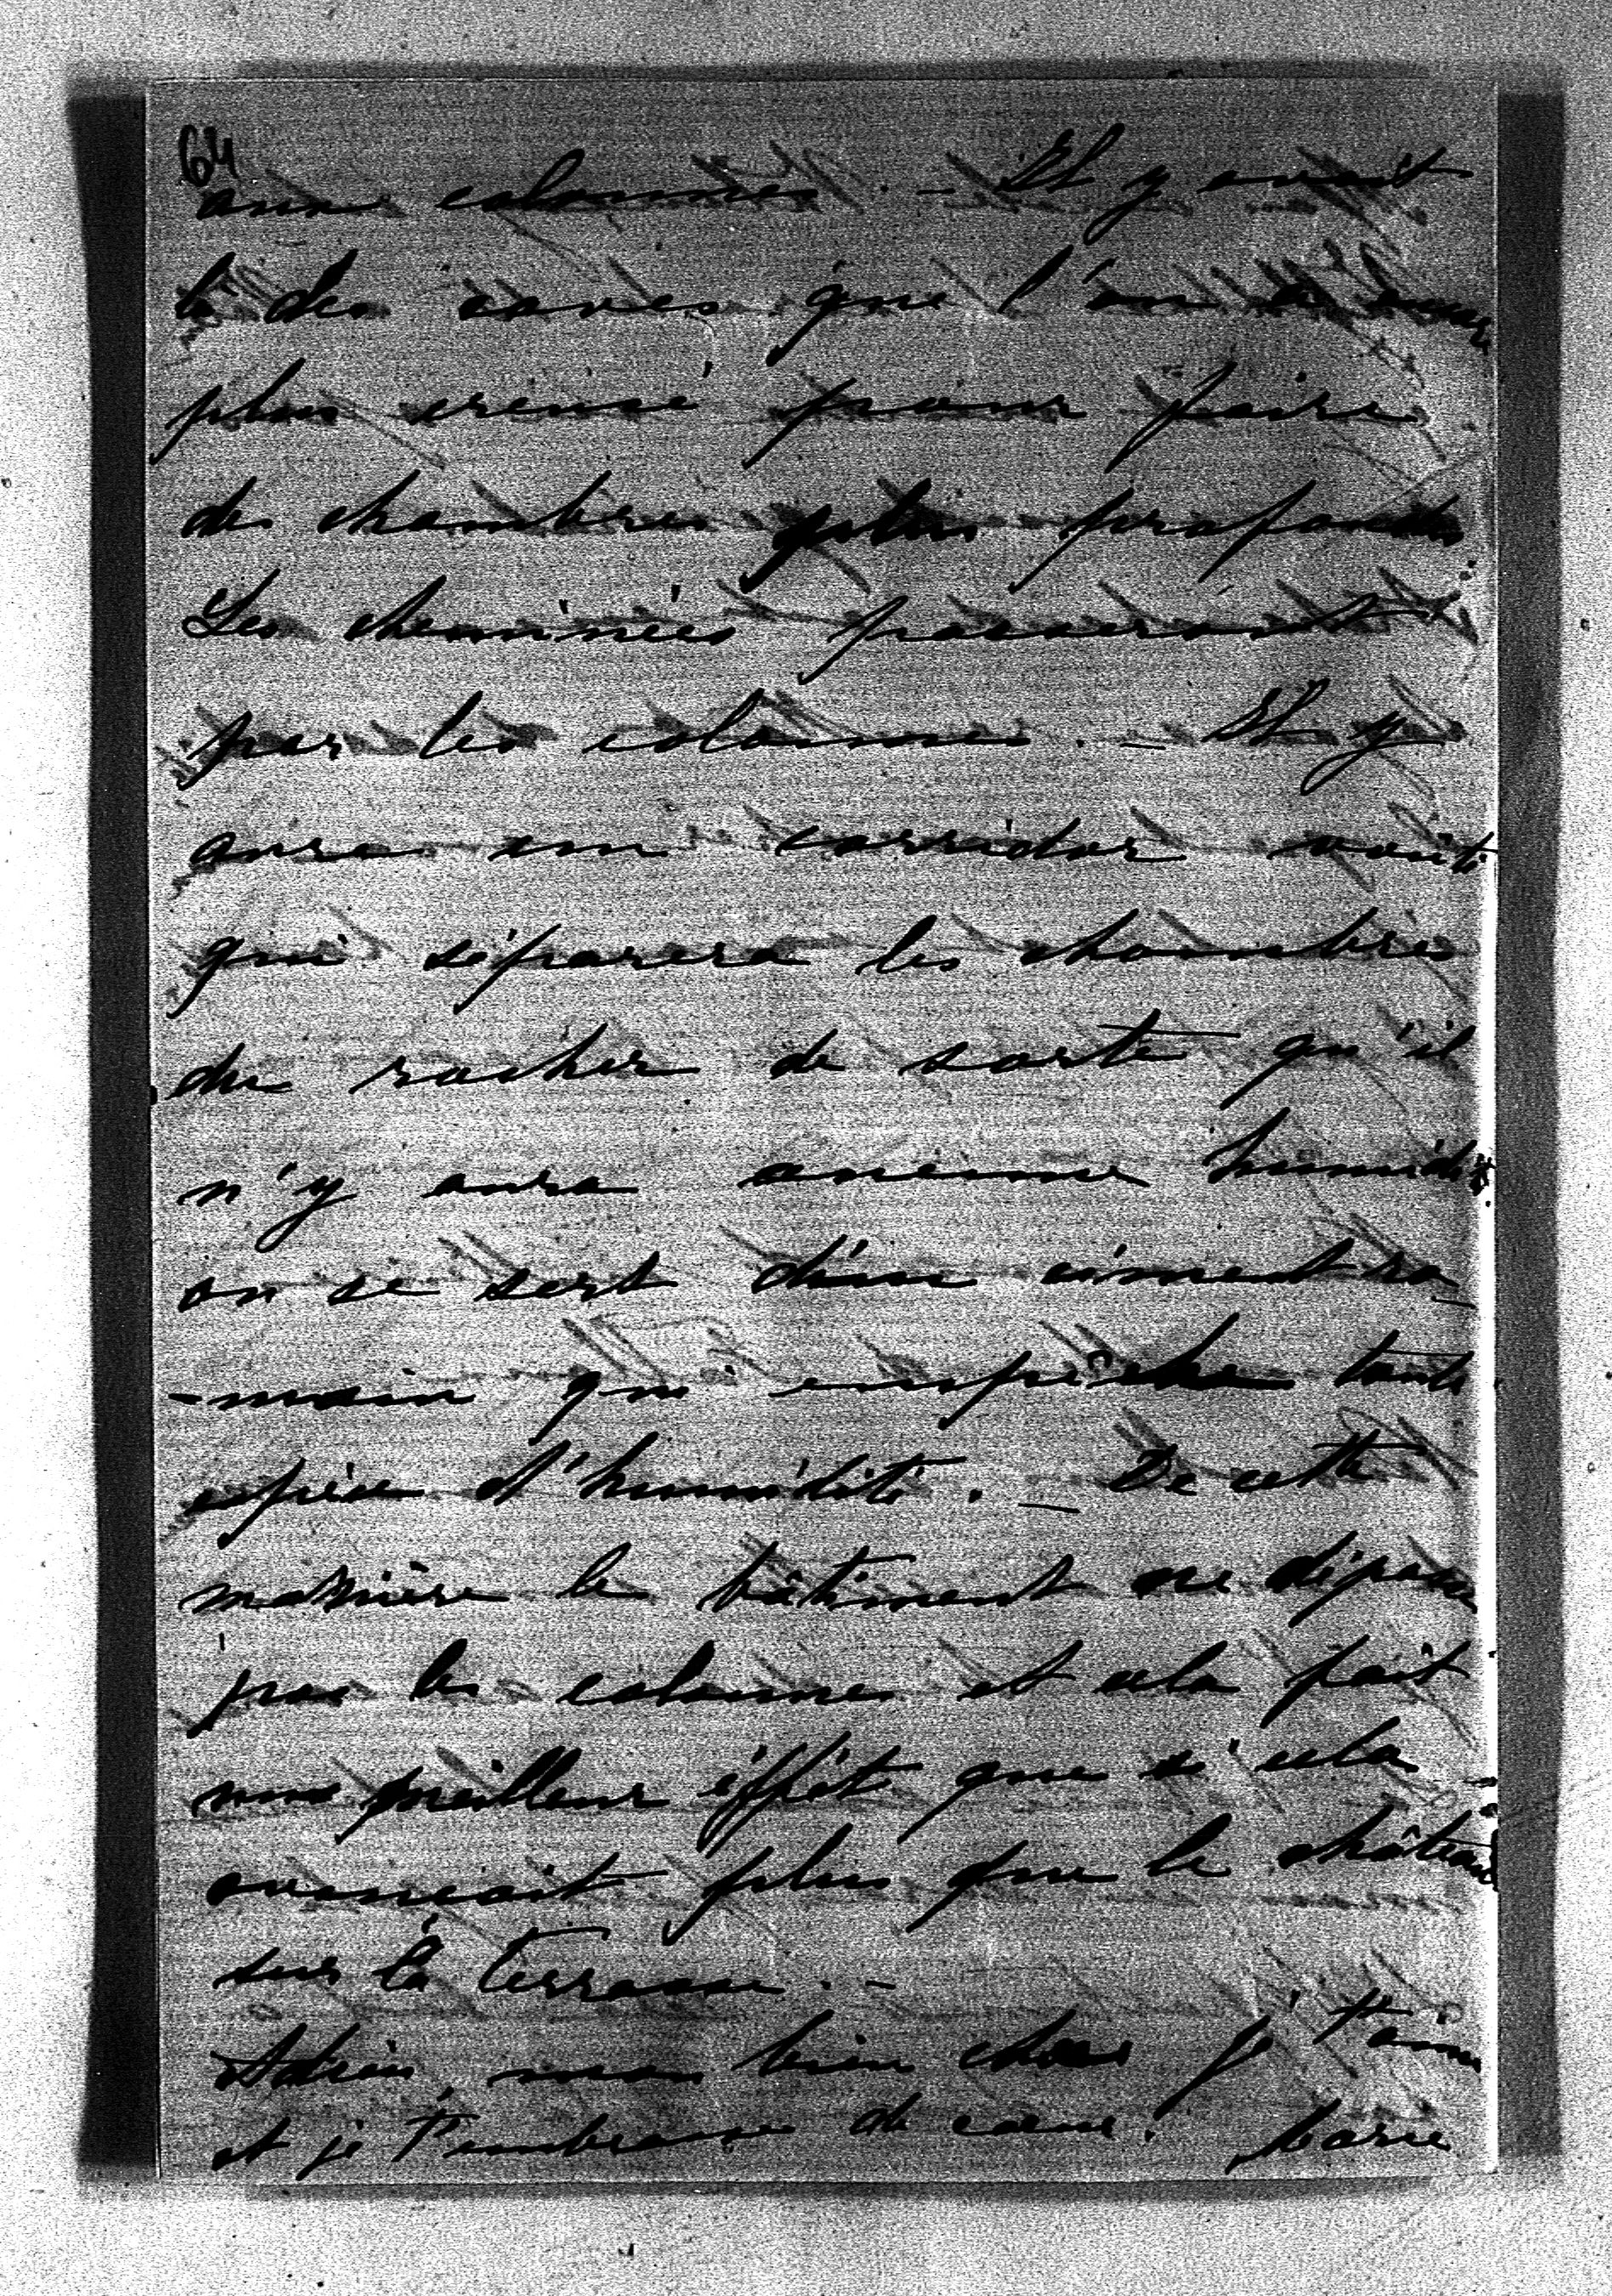 64
aux colonnes. – Il y avait
là des caves que l'on a
plus creusé pour faire
des chambres plus profondes
Les cheminées passeront
par les colonnes. – Il y
aura un corridor voûté
qui séparera les chambres
du rocher de sorte qu'il
n'y aura aucune humidité
on se sert d'un ciment ro_
-main qui empêche toute
espèce d'humidité. – De cette
manière le bâtiment ne dépasse
pas les colonnes et cela fait
meilleur éffêt que si cela
avançait plus que le château
sur la terrasse. –
Adieu, mon bien cher je t'aime
et je t'embrasse de cœur. Marie